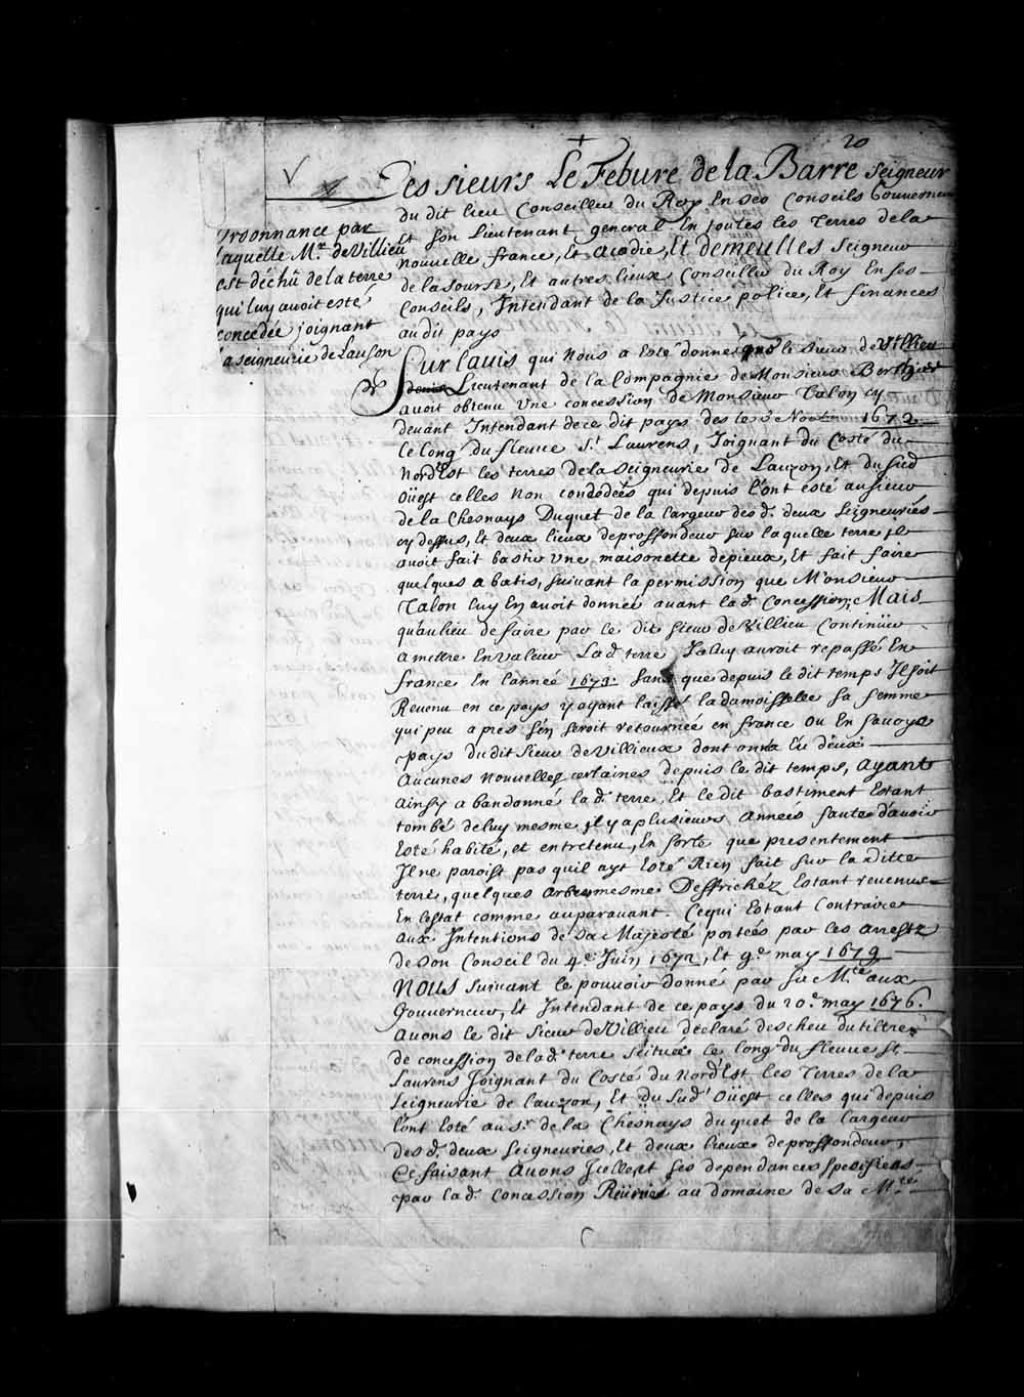 20
Les sieurs Le Febure de la Barre Seigneur
du dit lieu Conseiller du Roy En ses Conseils Gouverneur
et son Lieutenant general En toutes les Terres de la
Nouvelle france, Et Acadie, Et demeulles Seigneur
de la sourse, Et autres lieux Conseiller du Roy En ses
Conseils, Intendant de la Justice police, Et finances
au dit pays
Ordonnance par
laquelle Mr. de Villieu
est déchû de la terre
qui luy avoit esté
concedée joignant
la seigneurie de Lauson
Sur lauis qui Nous a Esté donné que le sieur de Villieu
Lieutenant de la Compagnie de Monsieur Berthier
avoit obtenu Une concession de Monsieur Talon cy
devant Intendant de ce dit pays des le 3e Nov 1672
le long du fleuue St. Laurens, Joignant du Costé du
Nord Est les terres de la Seigneurie de Lauzon, Et du Sud
Oüest celles Non condodées qui depuis l'ont ésté au sieur
de la Chesnays Duquet de la largeur des d. deux Seigneuriés
cy dessus, Et deux lieux de proffondeur sur laquelle terre il
avoit fait bastir Une maisonette de pieux, Et fait faire
quelques abatis, suivant la permission que Monsieur
Talon luy En avoit donneé avant lad. Concession; Mais
qu'au lieu de faire par le dit sieur de Villieu Continüer
a mettre En valeur Lad. terre Il auroit repassé En
france En l'anneé 1673. sans que depuis le dit temps Il soit
Revenu en ce pays y ayant laissé la damoisselle sa femme
qui peu aprés s'en seroit retourneé en france ou En Savoye
pays du dit Sieur de Villieux dont on n'a Eu
Aucunes Nouvelles certaines depuis le dit temps, ayant
ainsy abandonné lad. terre, Et le dit bastiment Estant
tombé de luy mesme il y a plusieurs anneés faute d'auoir
Esté habité, et entretenu, En sorte que presentement
Il ne paroist pas quil ayt Esté Rien fait sur la ditte
terre, quelques arbres mesme Deffrichéz Estant revenus
En l'estat comme auparauant. Ce qui Estant Contraire
aux Intentions de Sa Majesté porteés par les arrests
de son Conseil du 4e. Juin 1672, Et 9e. may 1679
NOUS suivant le pouvoir donné par sa Mté. aux
Gouverneur, Et Intendant de ce pays du 20e. may 1676.
Avons le dit Sieur de Villieu declaré descheu du tiltre
de concession de lad. terre scitueé le long du fleuue St.
Laurens Joignant du Costé du Nord Est les Terres de la
Seigneurie de lauzon, Et du Sud Oüest celles qui depuis
l'ont Esté au Sr. de la Chesnays duquet de la largeur
des d. deux Seigneuries, Et deux lieux de proffondeur,
Ce faisant Avons Icelle Et ses dependances spesifieés
par lad. Concession Reüniés au domaine de Sa Mté.